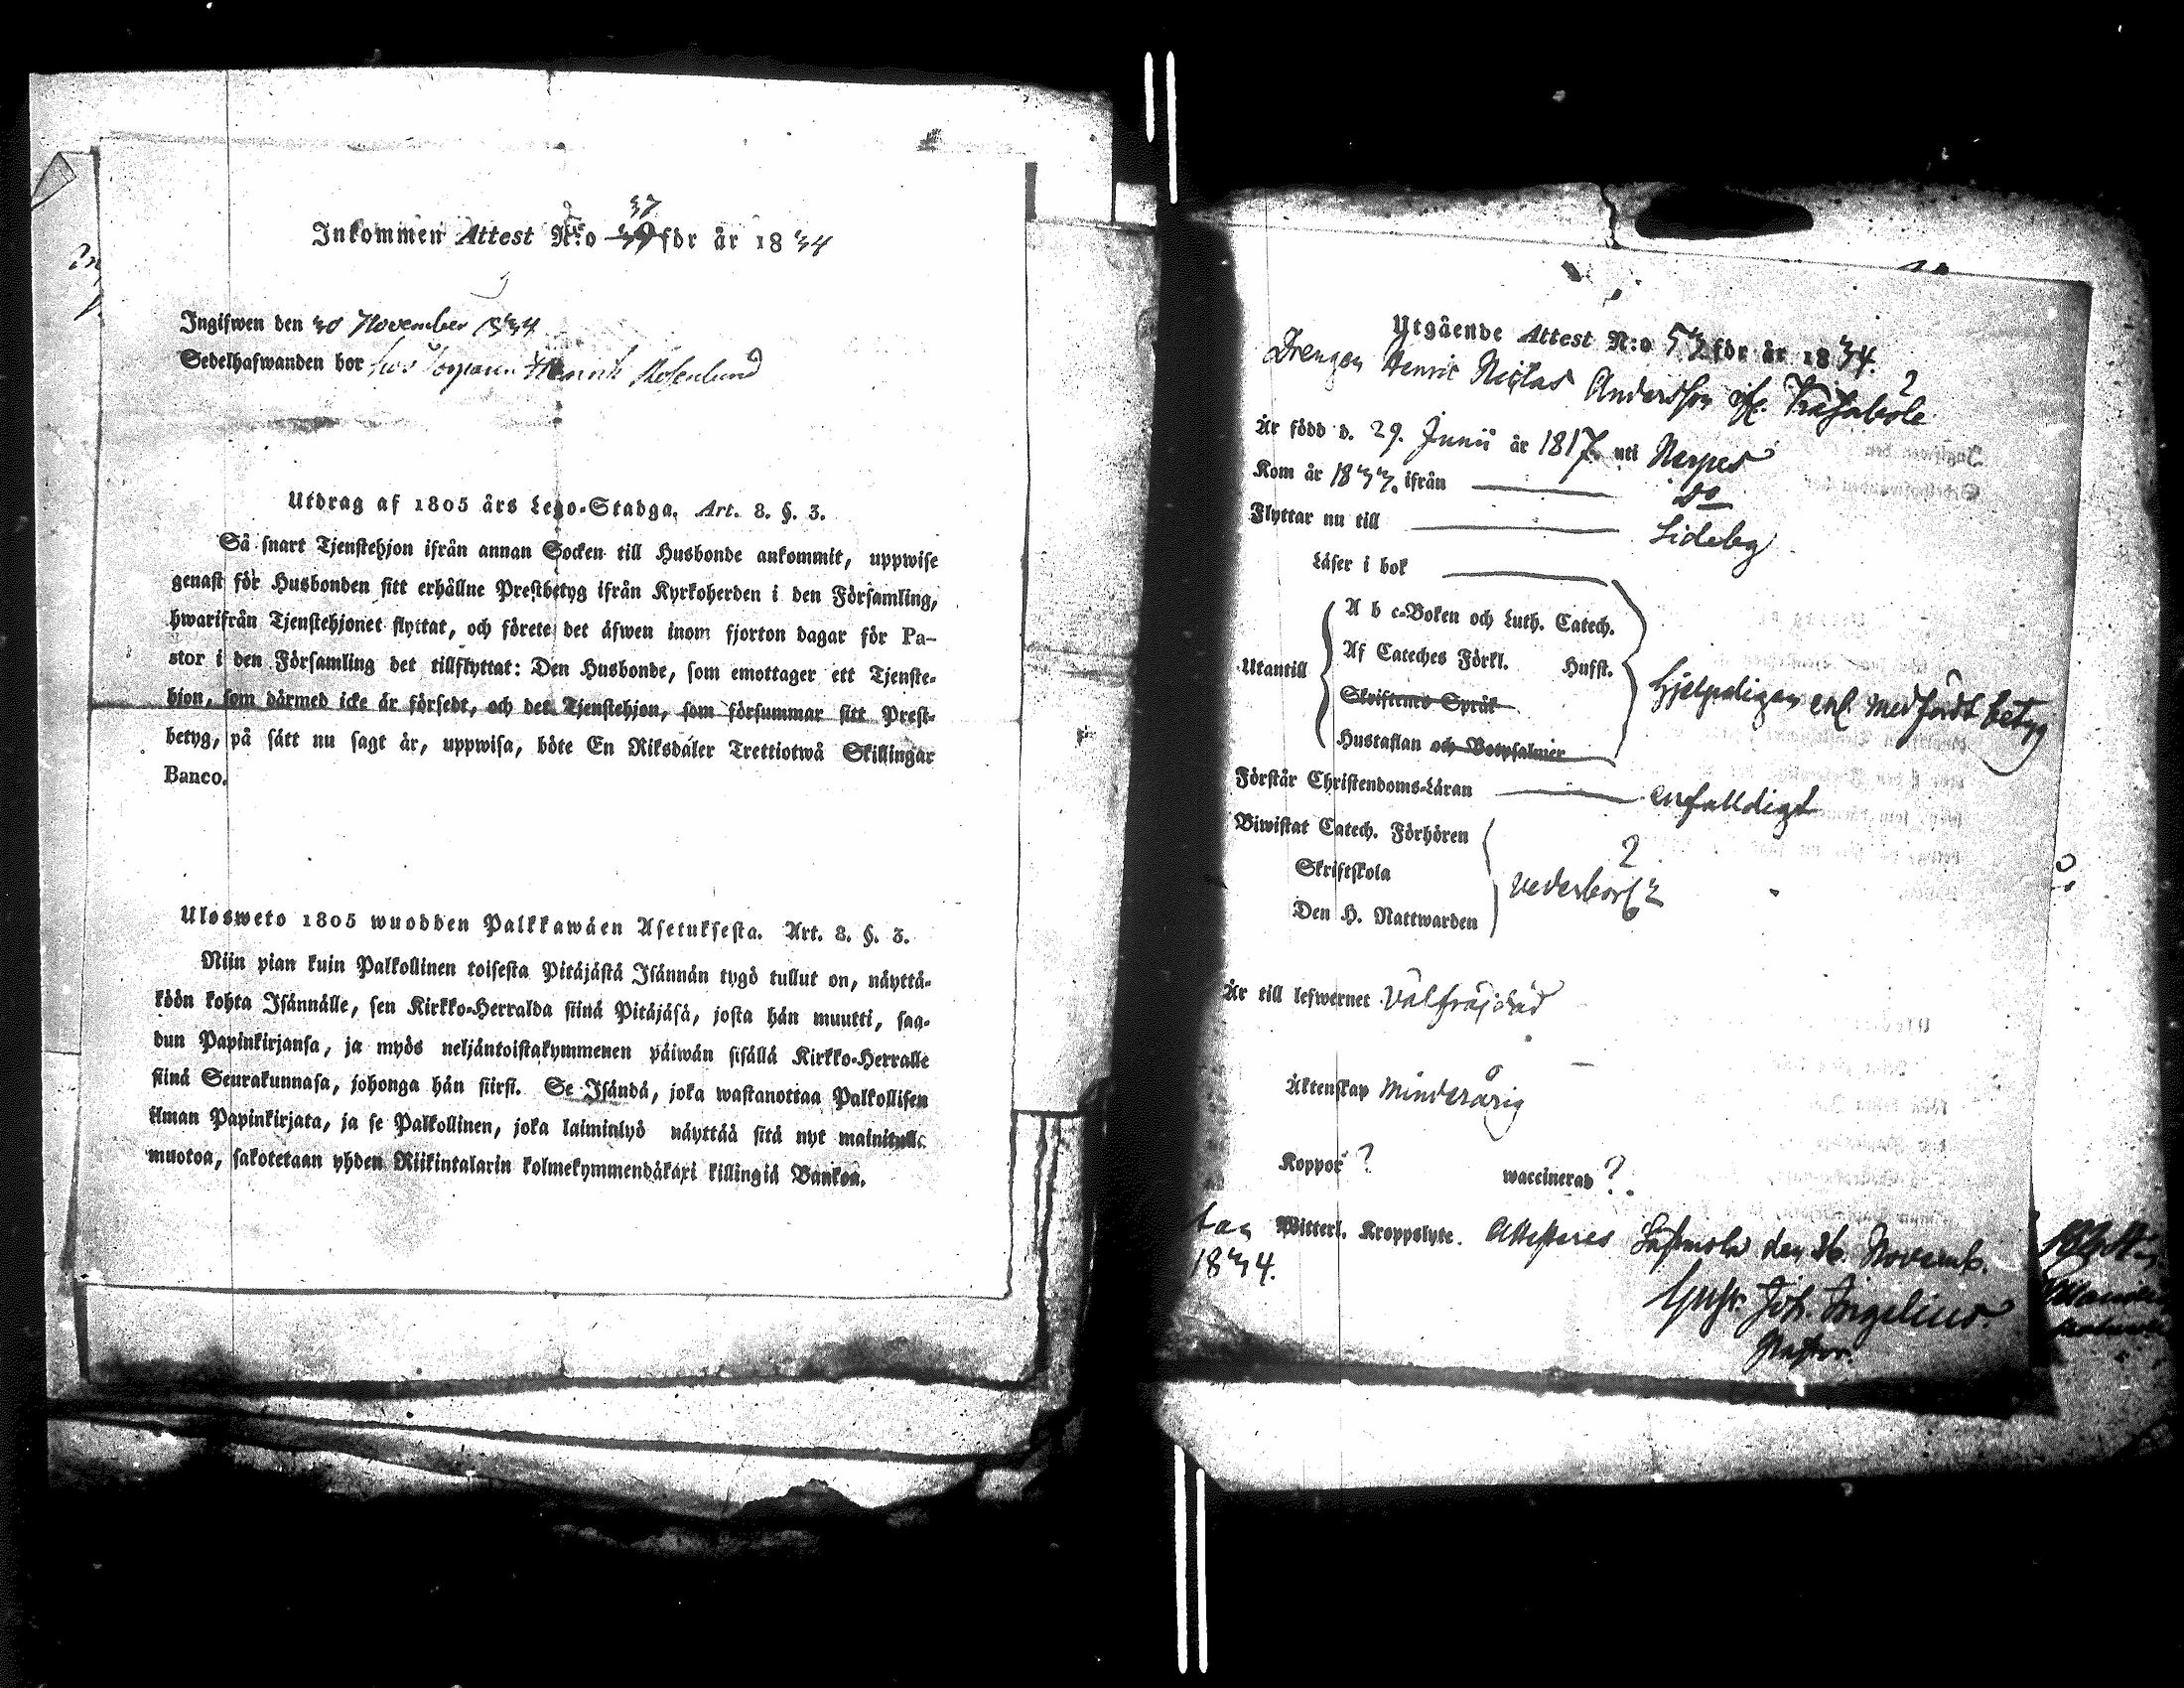 37
Inkommen Attest N:o 39 för år 1834
Ingifwen den 30 November 1834
Sedelhafwanden bor hos Henrik Rosenlund
Utdrag af 1805 års Lego-Stadga. Art. 8. §. 3.
Så snart Tjenstehjon ifrån annan Socken till Husbonde ankommit, uppwise
genast för Husbonden sitt erhållne Prestbetyg ifrån Kyrkoherden i den Församling,
hwarifrån Tjenstehjonet flyttat, och förete det äfwen inom fjorton dagar för Pa-
stor i den Församling det tillflyttat: Den Husbonde, som emottager ett Tjenste-
hjon, som därmed icke är försedt, och det Tjenstehjon, som försummar sitt Prest-
betyg, på sätt nu sagt är, uppwisa, böte En Riksdaler Trettiotwå Skillingar
Banco.
Ulosweto 1805 wuodden Palkkawäen Asetuksesta. Art. 8. §. 3.
Niin pian kuin Palkollinen toisesta Pitäjästä Isännän tygö tullut on, näyttä-
köön kohta Isännälle, sen Kirkko-Herralda siinä Pitäjäsä, josta hän muutti, saa-
dun Papinkirjansa, ja myös neljäntoistakymmenen päiwän sisällä Kirkko-Herralle
siinä Seurakunnasa, johonga hän siirsi. Se Isändä, joka wastanottaa Palkollisen
ilman Papinkirjata, ja se Palkollinen, joka laiminlyö näyttää sitä nyt mainitulla
muotoa, sakotetaan yhden Riikintalarin kolmekymmendäkaxi killingiä Bankoa.
Utgående Attest N:o 53 för år 1834.
Drengen Henric Niclas Andersson ifr. Träskböle
Är född d. 29. Junii år 1817. uti Nerpes
Kom år 1833. ifrån do
Flyttar nu till Sideby
Läser i bok
A b c-Boken och Luth. Catech.
Utantill Af Cateches Förkl. Hufst.
Skriftenes Språk
Hustaflan och Botpsalmier
hjelpeligen enl. medfördt betyg
Förstår Christendoms-Läran enfalldigt
Biwistat Catech. Förhören
Skriftskola
Den H. Nattwarden
vederbörl.
Är till lefwernet välfräjdad
Äktenskap minderårig
Koppor ? waccinerad ?.
utan Witterl. Kroppslyte. Attesteres Lappfjerd den 26. Novemb.
1834.
Gust. Joh. Ingelius.
Pastor.